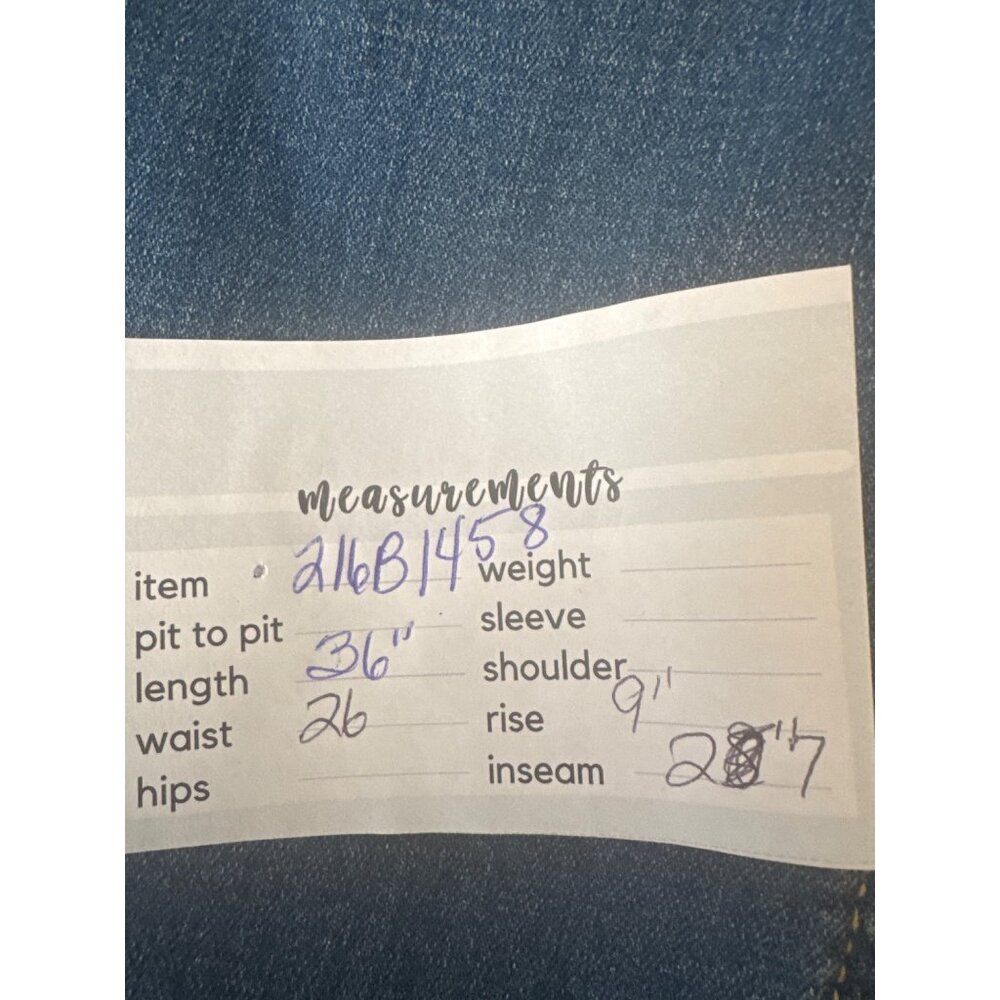 measurements
item 216B1458 weight
pit to pit sleeve
length 36" shoulder
waist 26 rise 9"
hips inseam 2"7